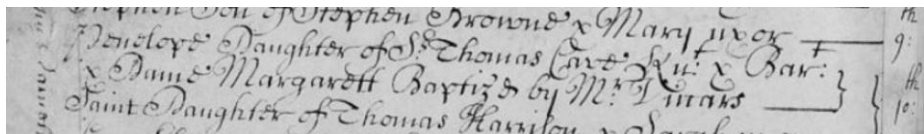 Stephen Son of Stephen Browne x Mary uxor th
Penelope Daughter of Sr. Thomas Cave Knt. x Bart: 9:
x Dame Margarett Baptized by Mr. th
Saint Daughter of Thomas Harrison x Sarah 10: